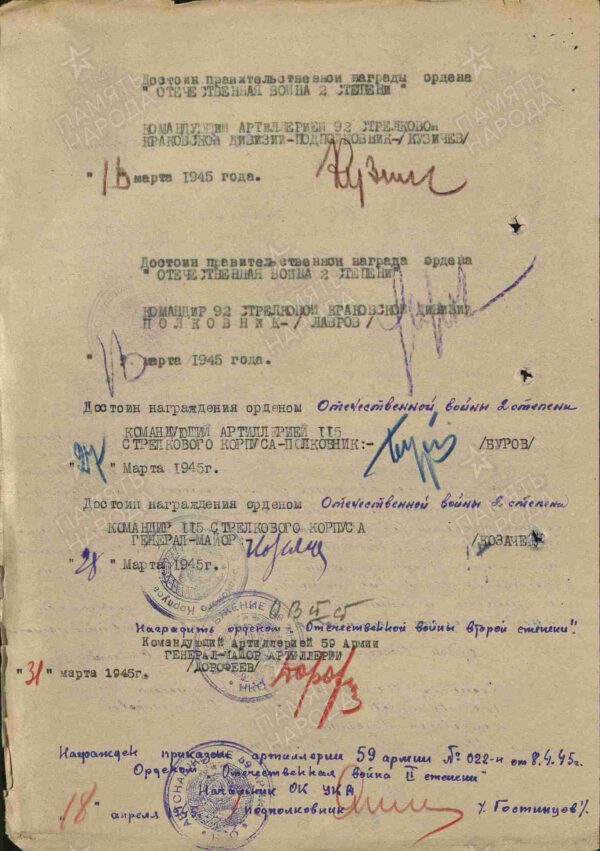 Достоин правительственной награды ордена
" ОТЕЧЕСТВЕННАЯ ВОЙНА 2 СТЕПЕНИ "
КОМАНДУЮЩИЙ АРТИЛЛЕРИЕЙ 92 СТРЕЛКОВОЙ
КРАКОВСКОЙ ДИВИЗИИ-ПОДПОЛКОВНИК-/КУЗИЧЕВ/
"16" марта 1945 года.
Достоин правительственной награда ордена
" ОТЕЧЕСТВЕННАЯ ВОЙНА 2 СТЕПЕНИ"
КОМАНДИР 92 СТРЕЛКОВОЙ КРАКОВСКОЙ ДИВИЗИИ
ПОЛКОВНИК-/ ЛАВРОВ /
марта 1945 года.
Достоин награждения орденом Отечественной войны 2 степени
КОМАНДУЮЩИЙ АРТИЛЛЕРИЕЙ 115
СТРЕЛКОВОГО КОРПУСА-ПОЛКОВНИК:- /БУРОВ/
"27" Марта 1945г.
Достоин награждения орденом Отечественной войны 2 степени
КОМАНДИР 115 СТРЕЛКОВОГО КОРПУСА
ГЕНЕРАЛ-МАЙОР /КОЗАЧЕК/
"28" Марта 1945г.
ОВ II ст
Наградить орденом "Отечественной войны второй степени".
Командующий Артиллерией 59 Армии
ГЕНЕРАЛ-МАЙОР АРТИЛЛЕРИИ
/ДОРОФЕЕВ/
"31" марта 1945г.
Награжден приказом артиллерии 59 армии № 022-н от 8.4.45г.
Орденом "Отечественная война II степени"
Начальник ОК УКА
"18" апреля 1945 подполковник /Гостинцев/
ПАМЯТЬ НАРОДА